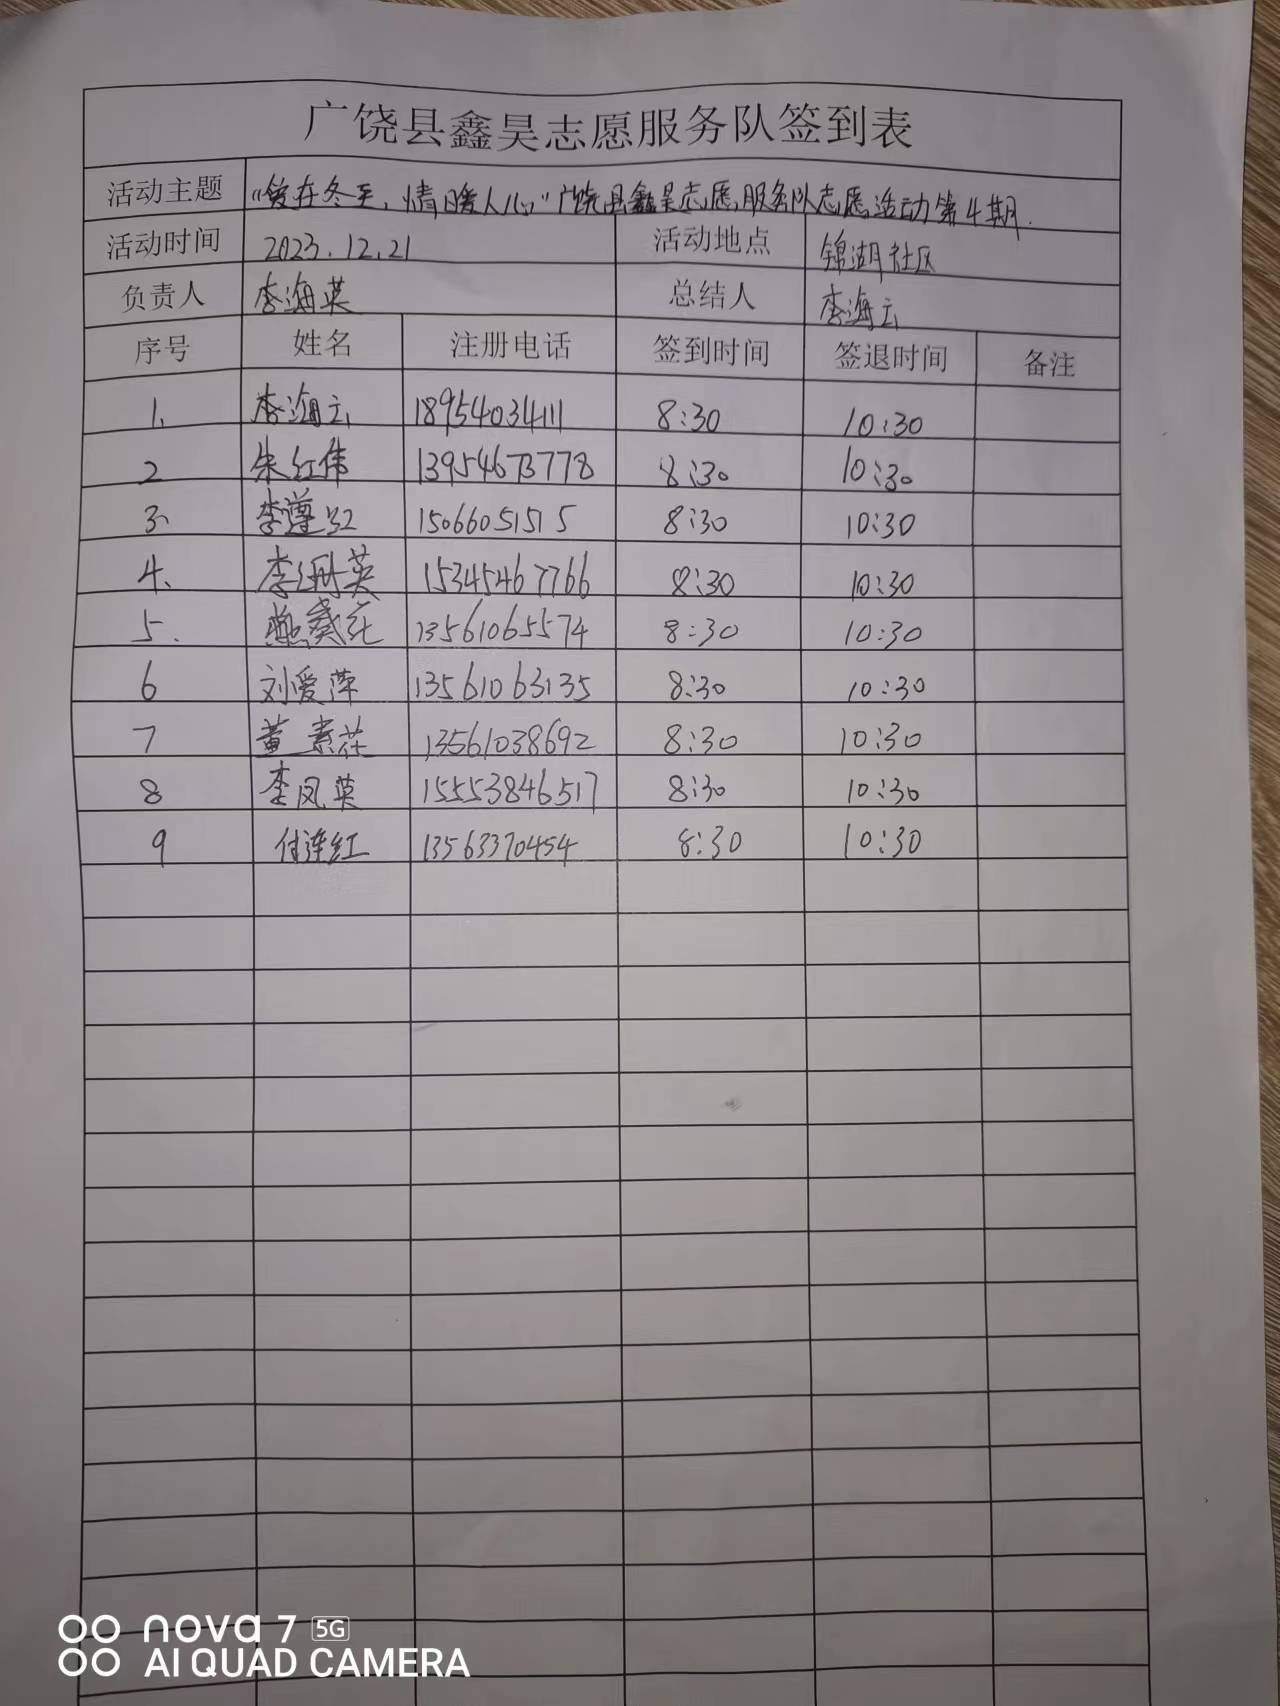 广饶县鑫昊志愿服务队签到表
活动主题 “爱在冬至，情暖人心”广饶县鑫昊志愿服务队志愿活动第4期.
活动时间 2023.12.21 活动地点 锦湖社区
负责人 李海英 总结人 李海云
序号 姓名 注册电话 签到时间 签退时间 备注
1. 李海云 18954034111 8:30 10:30
2 朱红伟 13954673778 8:30 10:30
3、 李遵红 15066051515 8:30 10:30
4、 李珊英 15345467766 8:30 10:30
5. 13561065574 8:30 10:30
6 刘爱萍 13561063135 8:30 10:30
7 黄素花 13561038692 8:30 10:30
8 李凤英 15553846517 8:30 10:30
9 付连红 13563370454 8:30 10:30
nova 7 5G
AI QUAD CAMERA